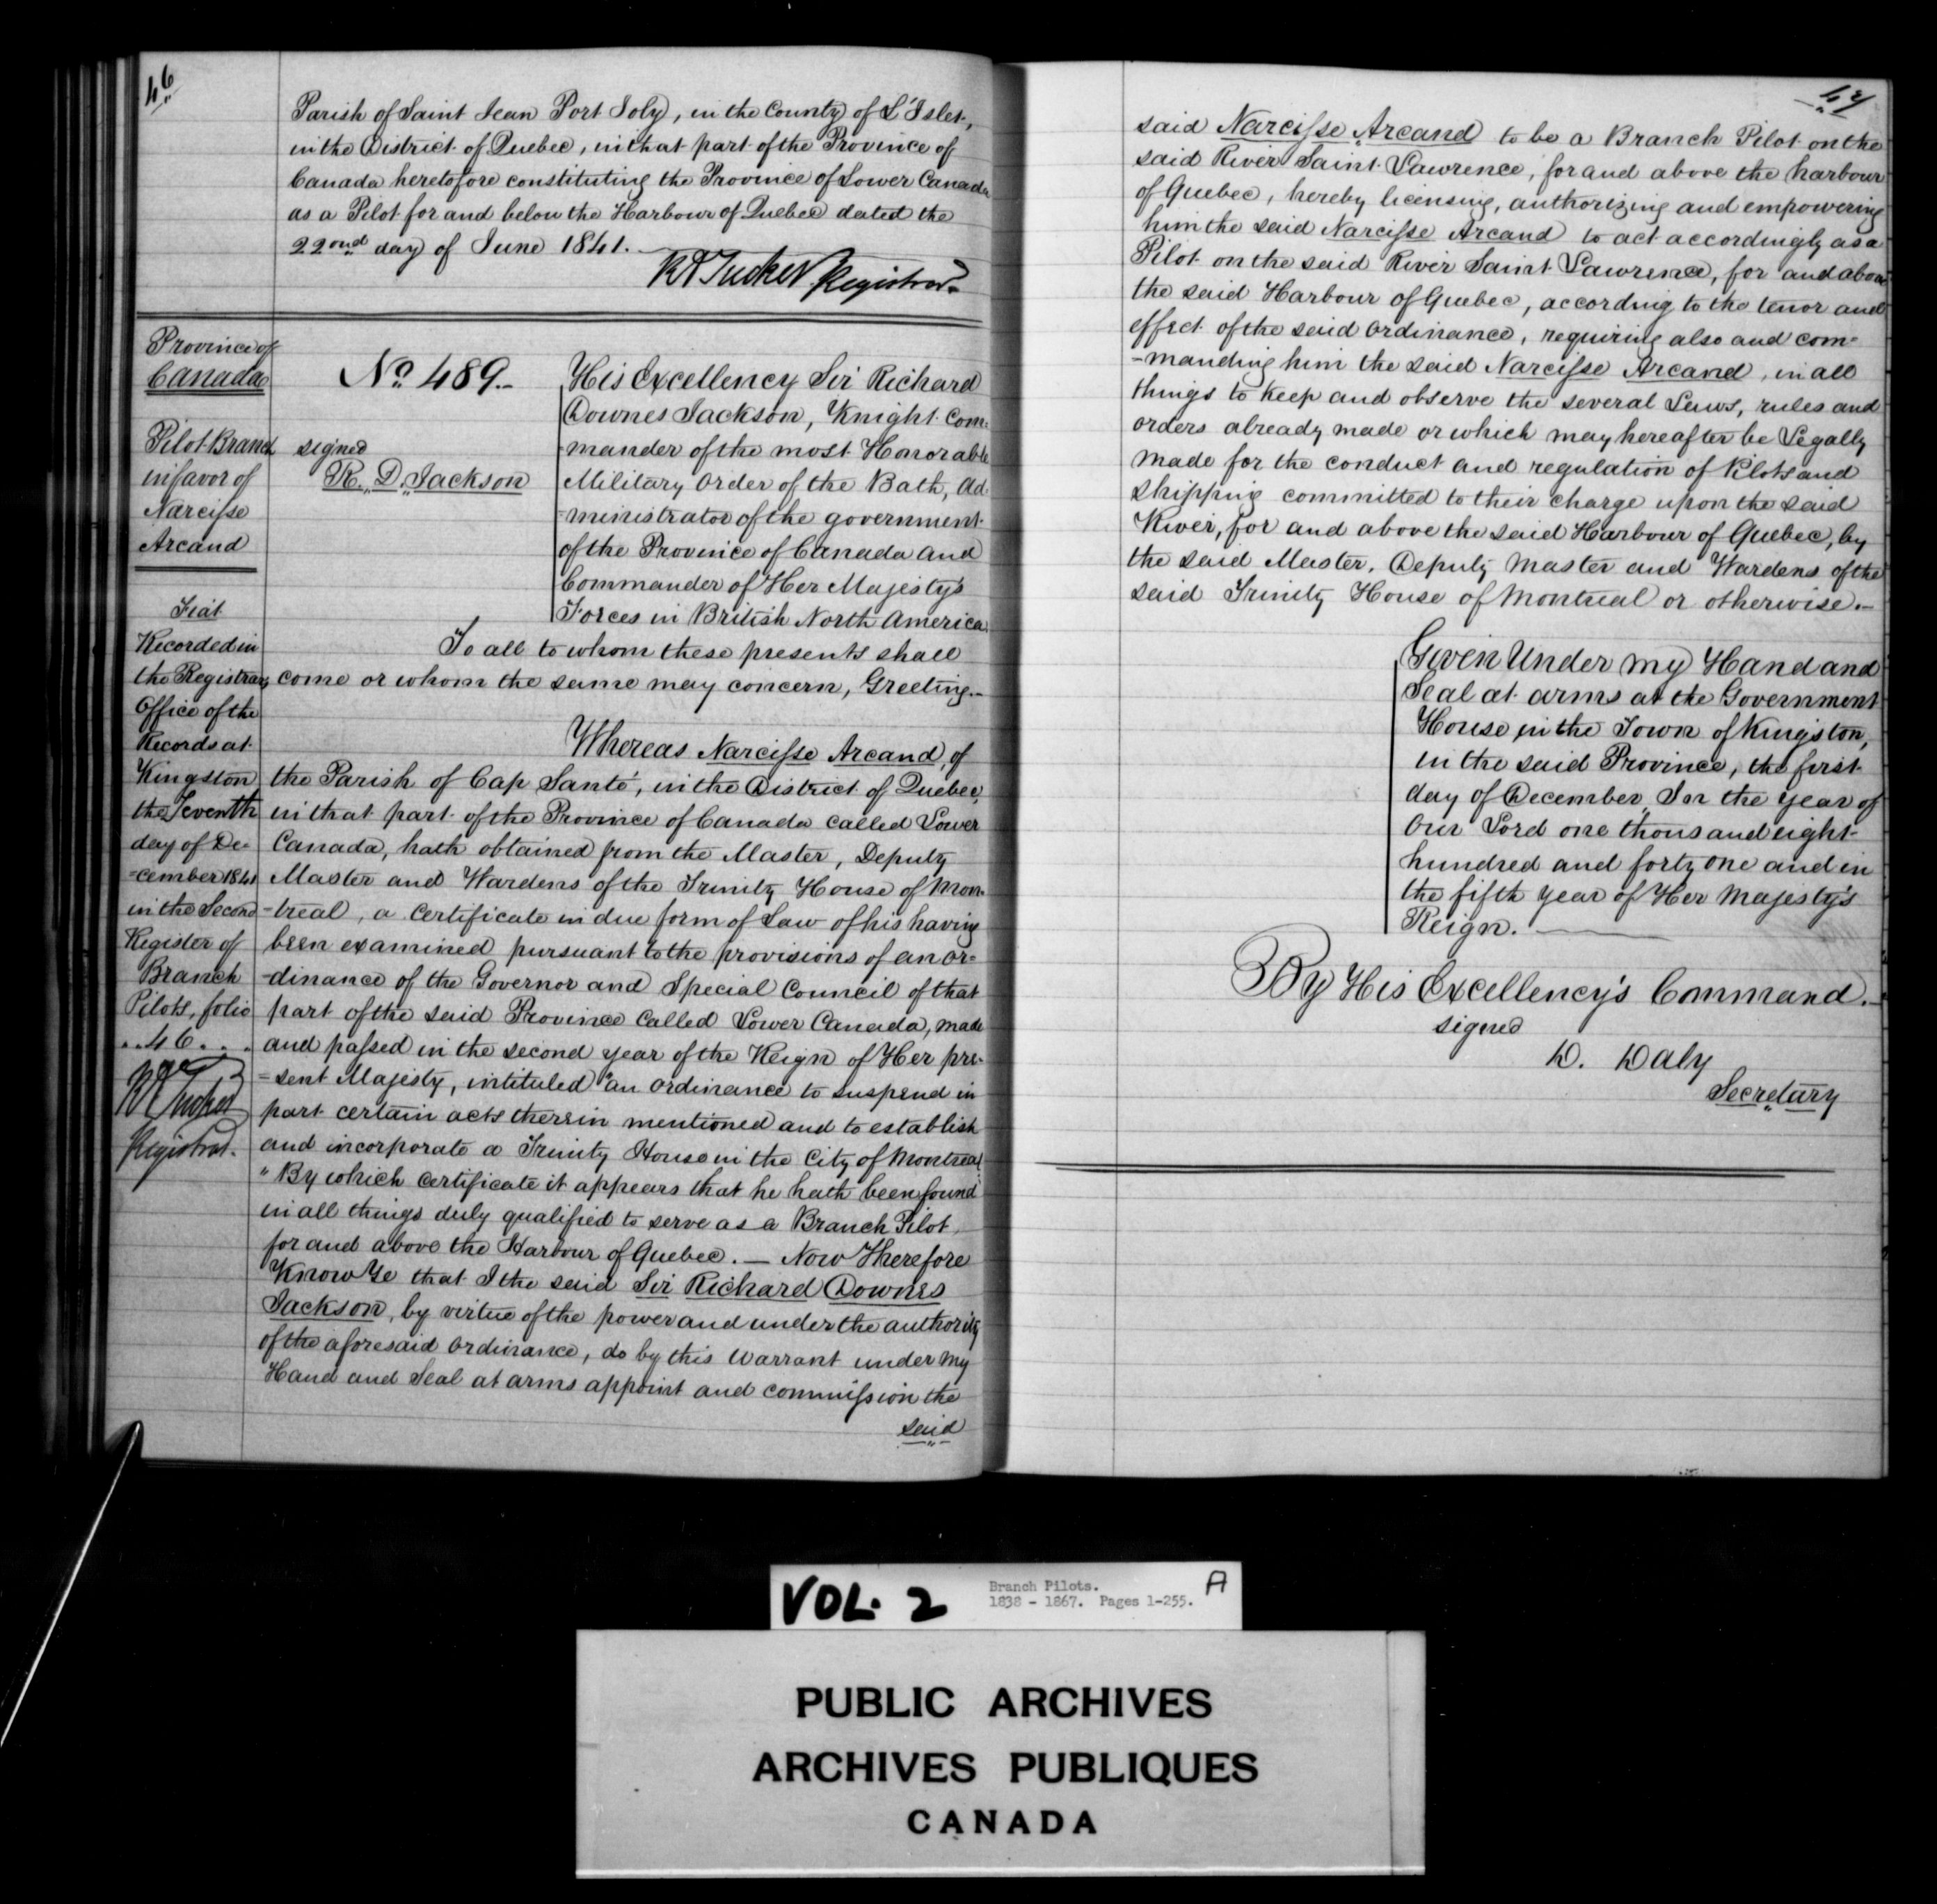 46
Parish of Saint Jean Port Joly, in the County of L'Islet,
in the District of Quebec, in that part of the Province of
Canada heretofore constituting the Province of Lower Canada
as a Pilot for and below the Harbour of Quebec dated the
22ond day of June 1841.
R A Tucker Registrar.
Province of
Canada
Pilot Branch
in favor of
Narcisse
Arcand
Fiat
Recorded in
the Registrars
Office of the
Records at
Kingston
the Seventh
day of De-
=cember 1841
in the Second
Register of
Branch
Pilots, folio
..46...
R A Tucker
Registrar.
No. 489.-
signed
R. D. Jackson
His Excellency Sir Richard
Downes Jackson, Knight Com=
-mander of the most Honorable
Military Order of the Bath, Ad-
=ministrator of the government
of the Province of Canada and
Commander of Her Majesty's
Forces in British North America.
To all to whom these presents shall
come or whom the same may concern, Greeting.-
Whereas Narcisse Arcand, of
the Parish of Cap Santé, in the District of Quebec,
in that part of the Province of Canada called Lower
Canada, hath obtained from the Master, Deputy
Master and Wardens of the Trinity House of Mon-
-treal, a certificate in due form of Law of his having
been examined pursuant to the provisions of an or=
-dinance of the Governor and Special Council of that
part of the said Province called Lower Canada, made
and passed in the second year of the Reign of Her pre-
=sent Majesty, intituled "an ordinance to suspend in
part certain acts therein mentioned and to establish
and incorporate a Trinity House in the City of Montreal
" By which certificate it appears that he hath been found
in all things duly qualified to serve as a Branch Pilot,
for and above the Harbour of Quebec. — Now Therefore
Know Ye that I the said Sir Richard Downes
Jackson, by virtue of the power and under the authority
of the aforesaid ordinance, do by this warrant under my
Hand and Seal at arms appoint and commission the
said
47
said Narcisse Arcand to be a Branch Pilot on the
said River Saint Lawrence, for and above the harbour
of Quebec, hereby licensing, authorizing and empowering
him the said Narcisse Arcand to act accordingly as a
Pilot on the said River Saint Lawrence, for and above
the said Harbour of Quebec, according to the tenor and
effect of the said Ordinance, requiring also and com=
-manding him the said Narcisse Arcand, in all
things to keep and observe the several Laws, rules and
orders already made or which may hereafter be Legally
made for the conduct and regulation of Pilots and
shipping committed to their charge upon the said
River, for and above the said Harbour of Quebec, by
the said Master, Deputy Master and Wardens of the
said Trinity House of Montreal or otherwise.-
Given Under my Hand and
Seal at arms at the Government
House in the Town of Kingston,
in the said Province, the first
day of December, In the year of
Our Lord one thousand eight-
hundred and forty one and in
the fifth year of Her Majesty's
Reign.
By His Excellency's Command.-
signed
D. Daly
Secretary
VOL. 2
Branch Pilots.
1838 - 1867. Pages 1-255.
A
PUBLIC ARCHIVES
ARCHIVES PUBLIQUES
CANADA